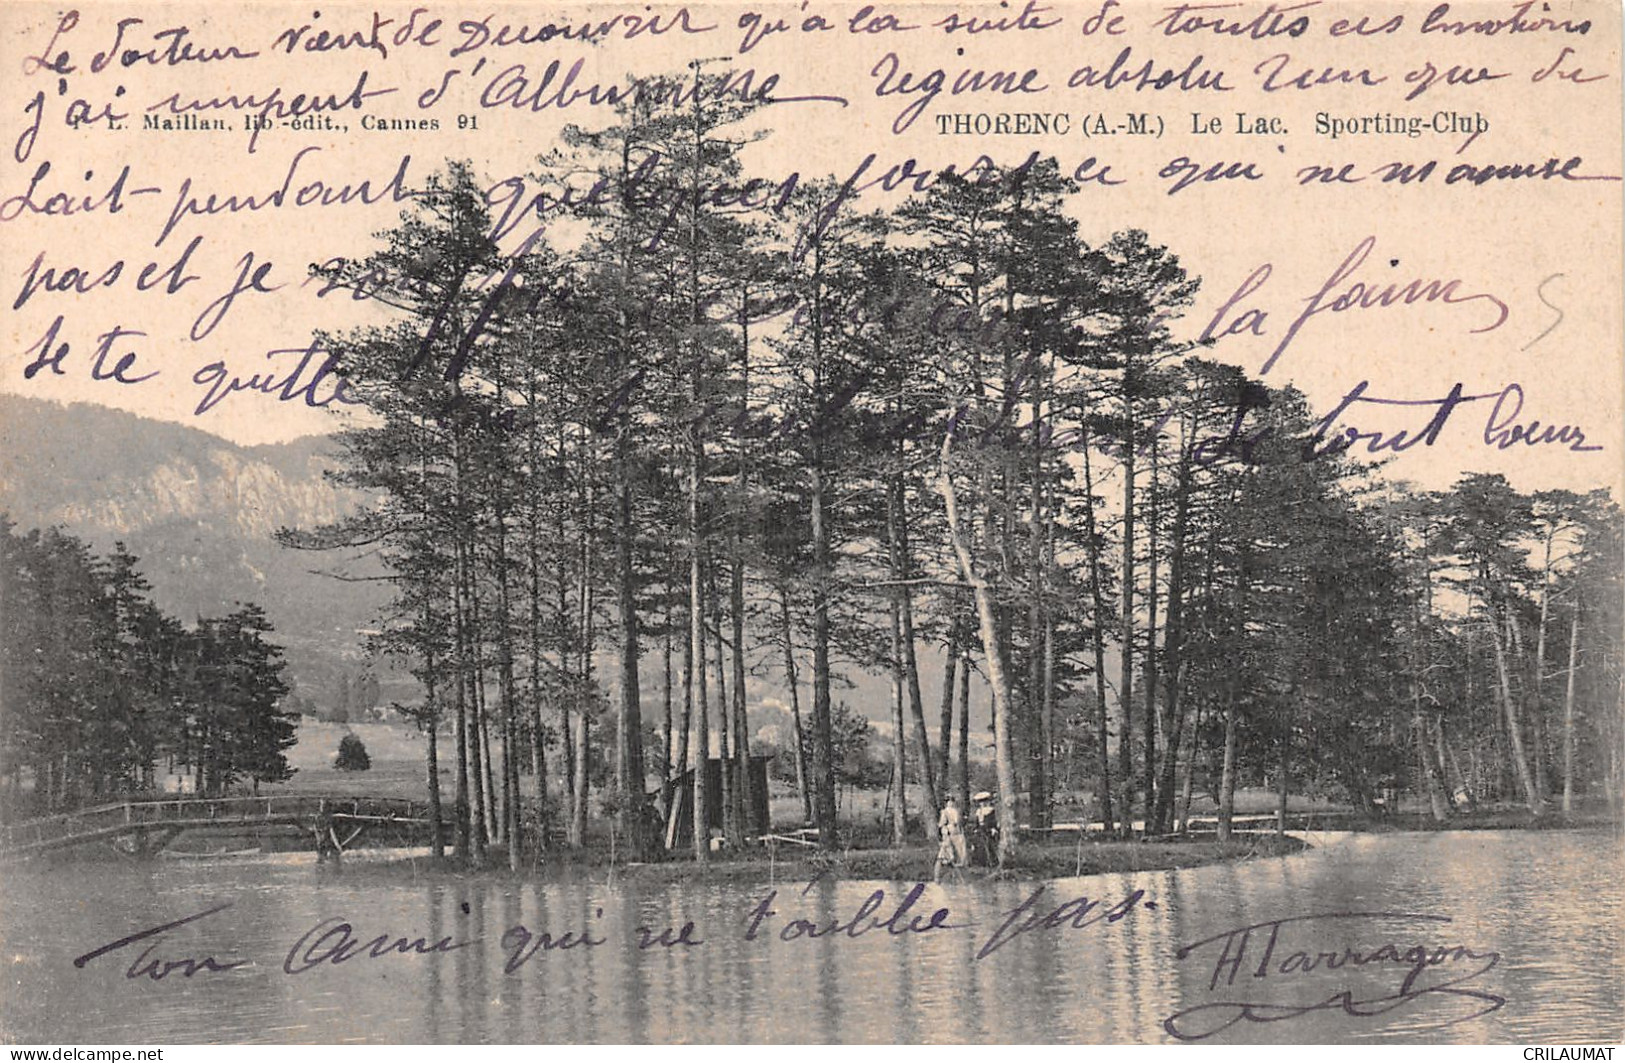 Le docteur vient de Decouvrir qu'a la suite de toutes ces Emotions
j'ai un peut d'Albumine regime absolu rien que du
L. Maillan, lib.-édit., Cannes 91
THORENC (A.-M.) Le Lac. Sporting-Club
Lait pendant quelques jours ce qui ne m'amuse
pas et je souffre la faim
Je te quitte de tout Coeur
Ton Ami qui ne t'oublie pas.
HTarragon
CRILAUMAT